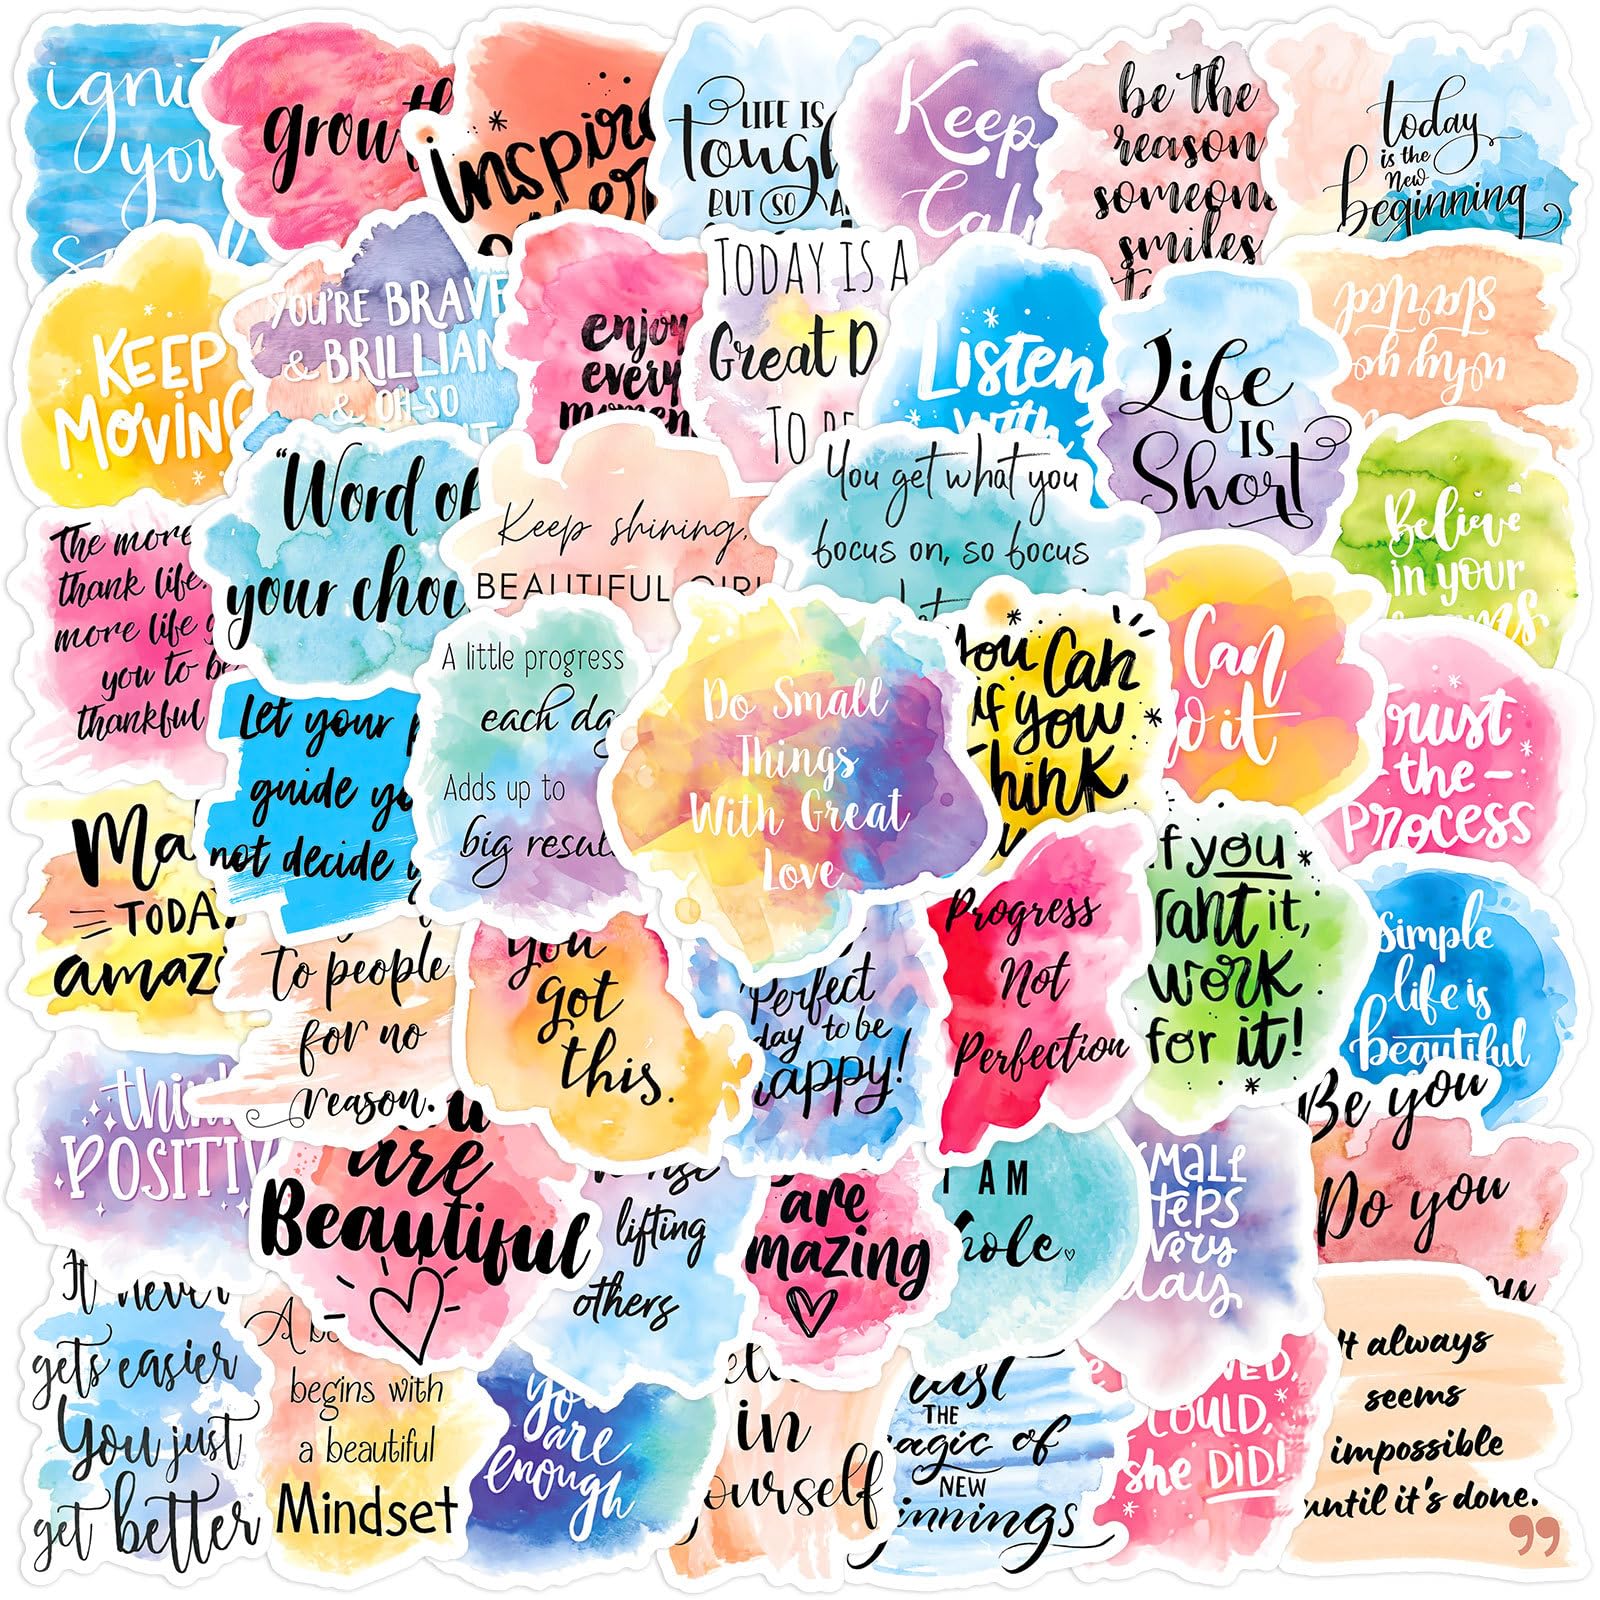 grow
inspire
LIFE IS
tough
BUT SO
Keep
be the
reason
someone
smiles
today
is the
New
beginning
KEEP
MOVING
YOU'RE BRAVE
& BRILLIAN
& OH-SO
enjoy
every
momen
TODAY IS A
Great D
TO BE
Listen
with
Life
IS
Short
why you
started
Believe
in your
"Word of
your choi
Keep shining,
BEAUTIFUL GIRL
You get what you
focus on, so focus
The more
thank life,
more life g
you to be
thankful
Let your
guide yo
not decide
A little progress
each day
Adds up to
big result
Do Small
Things
With Great
Love
You Can
if you
Think
Can
it
Trust
- the -
Process
Ma
TODAY
amazi
to people
for no
reason.
you
got
this.
Perfect
day to be
happy!
Progress
Not
Perfection
If you
want it,
work
for it!
Simple
life is
beautiful
think
POSITIV
are
Beautiful
lifting
others
are
amazing
I AM
whole
SMALL
STEPS
every
day
Be you
Do you
It never
gets easier
You just
get better
A be
begins with
a beautiful
Mindset
you
are
enough
in
yourself
THE
magic of
NEW
beginnings
COULD,
she DID!
It always
seems
impossible
until it's done.
”